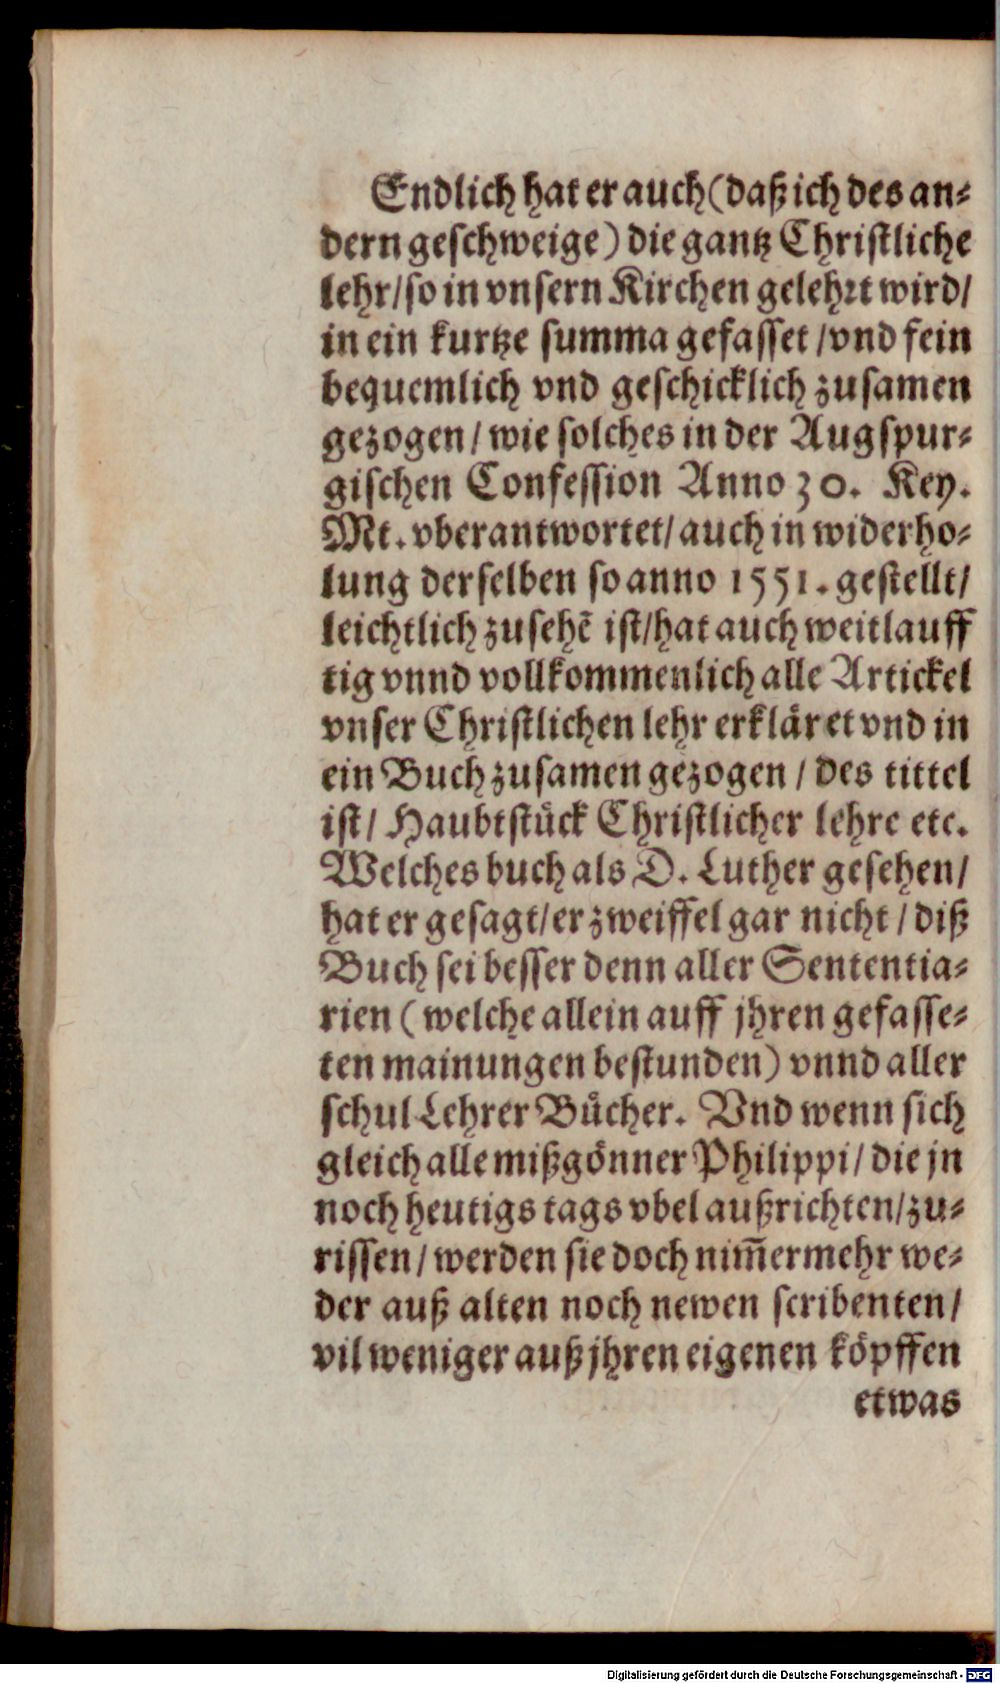 Endlich hat er auch (daß ich des an-
dern geschweige) die gantz Christliche
lehr/ so in vnsern Kirchen gelehrt wird/
in ein kurtze summa gefasset / vnd fein
bequemlich vnd geschicklich zusamen
gezogen / wie solches in der Augspur-
gischen Confession Anno 30. Key.
Mt. vberantwortet/ auch in widerho-
lung derselben so anno 1551. gestellt/
leichtlich zusehẽ ist/ hat auch weitlauff
tig vnnd vollkommenlich alle Artickel
vnser Christlichen lehr erkläret vnd in
ein Buch zusamen gezogen / des tittel
ist / Haubtstück Christlicher lehre etc.
Welches buch als D. Luther gesehen/
hat er gesagt/ er zweiffel gar nicht / diß
Buch sei besser denn aller Sententia-
rien ( welche allein auff jhren gefasse-
ten mainungen bestunden) vnnd aller
schul Lehrer Bücher. Vnd wenn sich
gleich alle mißgönner Philippi/ die jn
noch heutigs tags vbel außrichten/ zu-
rissen / werden sie doch nim̃ermehr we-
der auß alten noch newen scribenten/
vil weniger auß jhren eigenen köpffen
etwas
Digitalisierung gefördert durch die Deutsche Forschungsgemeinschaft - DFG